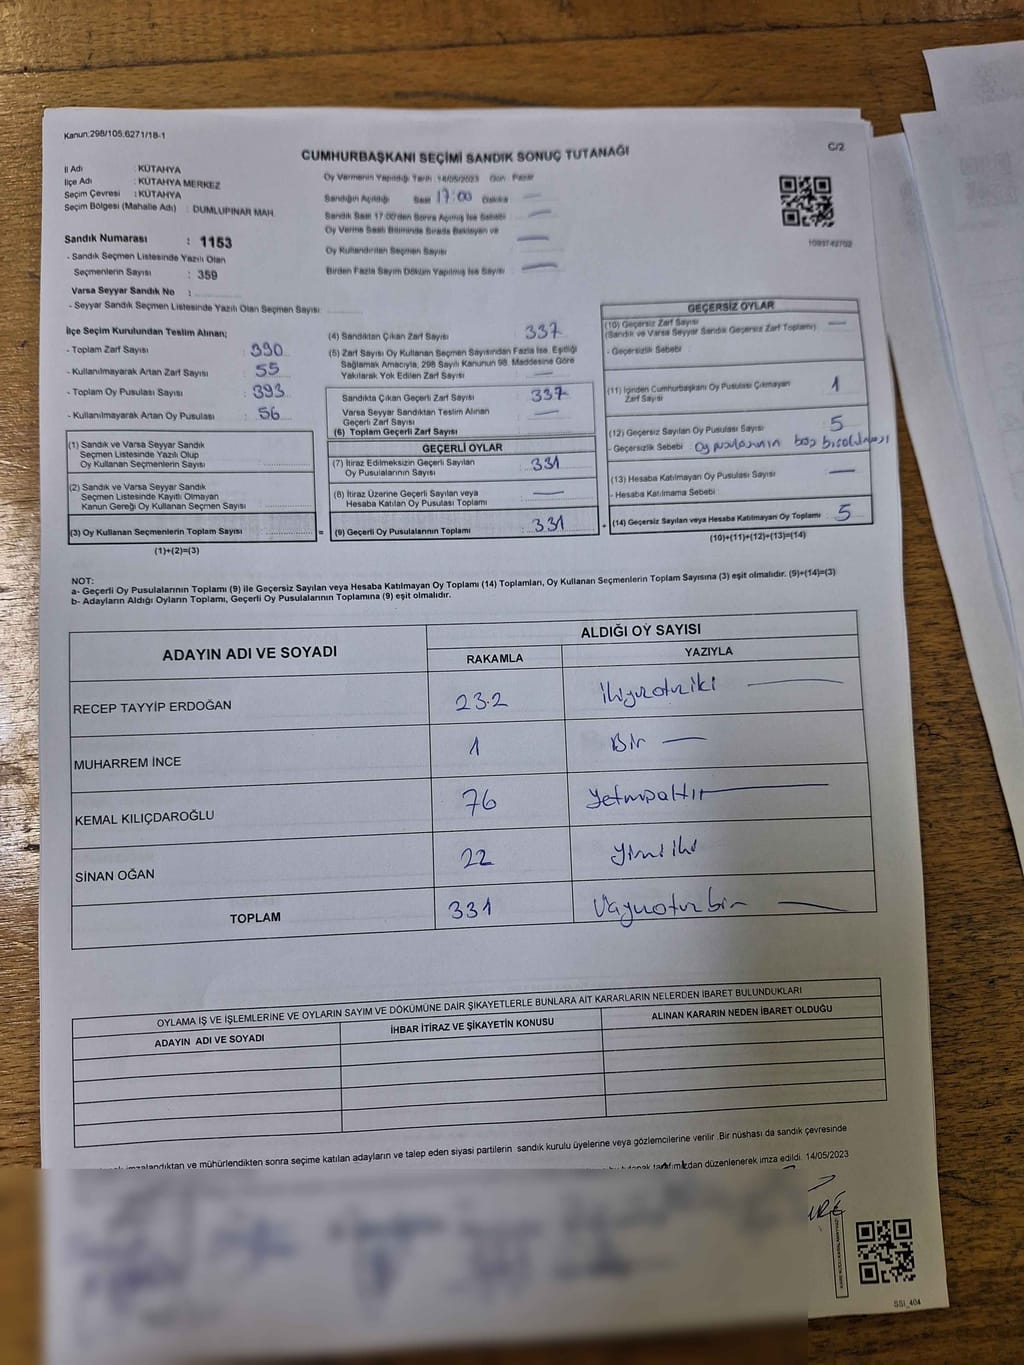 Kanun:298/105;6271/18-1
C/2
CUMHURBAŞKANI SEÇİMİ SANDIK SONUÇ TUTANAĞI
İl Adı : KÜTAHYA
İlçe Adı : KÜTAHYA MERKEZ
Seçim Çevresi : KÜTAHYA
Seçim Bölgesi (Mahalle Adı) : DUMLUPINAR MAH.
Sandık Numarası : 1153
- Sandık Seçmen Listesinde Yazılı Olan
Seçmenlerin Sayısı : 359
Varsa Seyyar Sandık No :
- Seyyar Sandık Seçmen Listesinde Yazılı Olan Seçmen Sayısı
Oy Vermenin Yapıldığı Tarih :14/05/2023 Gün : Pazar
Sandığın Açıldığı Saat 17:00 Dakika
Sandık Saat 17:00'den Sonra Açılmış İse Sebebi
Oy Verme Saati Bitiminde Sırada Bekleyen ve
Oy Kullandırılan Seçmen Sayısı
Birden Fazla Sayım Döküm Yapılmış İse Sayısı
1093742702
İlçe Seçim Kurulundan Teslim Alınan;
- Toplam Zarf Sayısı : 390
- Kullanılmayarak Artan Zarf Sayısı : 55
- Toplam Oy Pusulası Sayısı : 393
- Kullanılmayarak Artan Oy Pusulası : 56
(1) Sandık ve Varsa Seyyar Sandık
Seçmen Listesinde Yazılı Olup
Oy Kullanan Seçmenlerin Sayısı
(2) Sandık ve Varsa Seyyar Sandık
Seçmen Listesinde Kayıtlı Olmayan
Kanun Gereği Oy Kullanan Seçmen Sayısı
(3) Oy Kullanan Seçmenlerin Toplam Sayısı =
(1)+(2)=(3)
(4) Sandıktan Çıkan Zarf Sayısı 337
(5) Zarf Sayısı Oy Kullanan Seçmen Sayısından Fazla İse, Eşitliği
Sağlamak Amacıyla, 298 Sayılı Kanunun 98. Maddesine Göre
Yakılarak Yok Edilen Zarf Sayısı
Sandıkta Çıkan Geçerli Zarf Sayısı 337
Varsa Seyyar Sandıktan Teslim Alınan
Geçerli Zarf Sayısı
(6) Toplam Geçerli Zarf Sayısı
GEÇERLİ OYLAR
(7) İtiraz Edilmeksizin Geçerli Sayılan
Oy Pusulalarının Sayısı : 331
(8) İtiraz Üzerine Geçerli Sayılan veya
Hesaba Katılan Oy Pusulası Toplamı
(9) Geçerli Oy Pusulalarının Toplamı 331 +
GEÇERSİZ OYLAR
(10) Geçersiz Zarf Sayısı
(Sandık ve Varsa Seyyar Sandık Geçersiz Zarf Toplamı)
- Geçersizlik Sebebi
(11) İçinden Cumhurbaşkanı Oy Pusulası Çıkmayan
Zarf Sayısı 1
(12) Geçersiz Sayılan Oy Pusulası Sayısı 5
- Geçersizlik Sebebi : Oy pusulasının boş bırakılması
(13) Hesaba Katılmayan Oy Pusulası Sayısı
- Hesaba Katılmama Sebebi
(14) Geçersiz Sayılan veya Hesaba Katılmayan Oy Toplamı 5
(10)+(11)+(12)+(13)=(14)
NOT:
a- Geçerli Oy Pusulalarının Toplamı (9) ile Geçersiz Sayılan veya Hesaba Katılmayan Oy Toplamı (14) Toplamları, Oy Kullanan Seçmenlerin Toplam Sayısına (3) eşit olmalıdır. (9)+(14)=(3)
b- Adayların Aldığı Oyların Toplamı, Geçerli Oy Pusulalarının Toplamına (9) eşit olmalıdır.
ADAYIN ADI VE SOYADI
ALDIĞI OY SAYISI
RAKAMLA YAZIYLA
RECEP TAYYİP ERDOĞAN 232 ikiyüzotuziki
MUHARREM İNCE 1 Bir
KEMAL KILIÇDAROĞLU 76 Yetmişaltı
SİNAN OĞAN 22 Yirmiiki
TOPLAM 331 Üçyüzotuzbir
OYLAMA İŞ VE İŞLEMLERİNE VE OYLARIN SAYIM VE DÖKÜMÜNE DAİR ŞİKAYETLERLE BUNLARA AİT KARARLARIN NELERDEN İBARET BULUNDUKLARI
ADAYIN ADI VE SOYADI İHBAR İTİRAZ VE ŞİKAYETİN KONUSU ALINAN KARARIN NEDEN İBARET OLDUĞU
imzalandıktan ve mühürlendikten sonra seçime katılan adayların ve talep eden siyasi partilerin sandık kurulu üyelerine veya gözlemcilerine verilir .Bir nüshası da sandık çevresinde
tarafımızdan düzenlenerek imza edildi. 14/05/2023
SSI_404